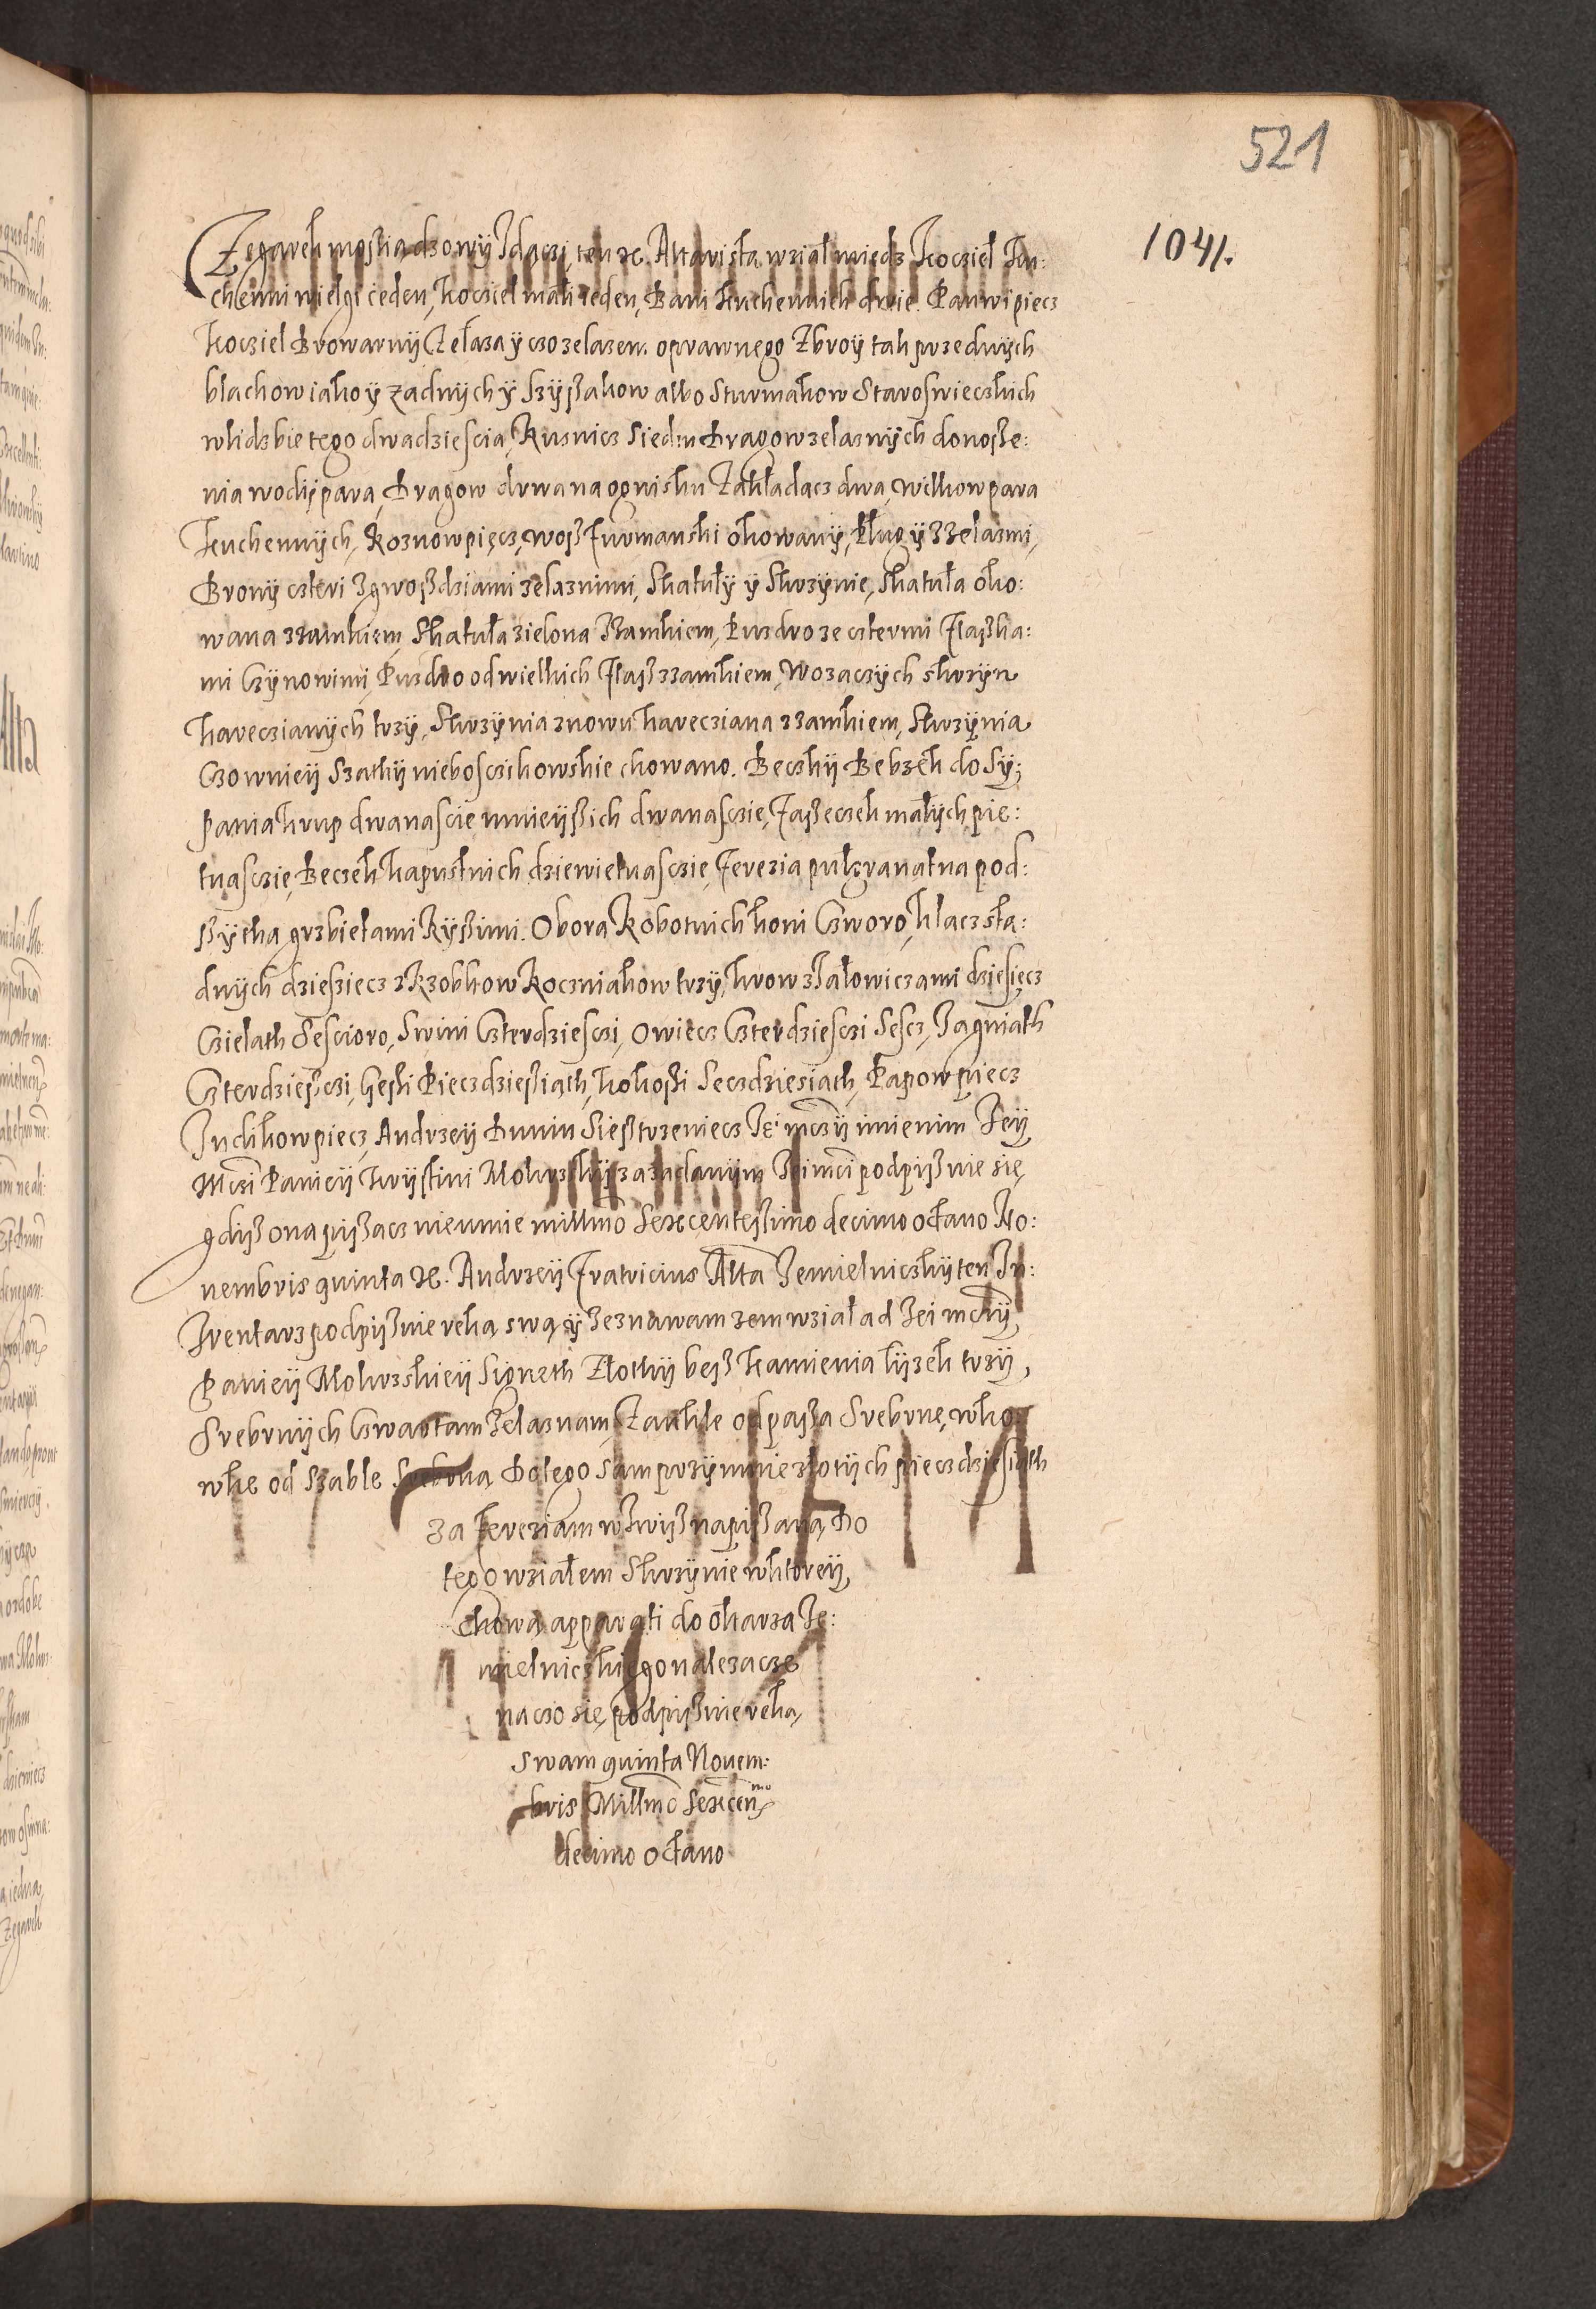 521
1041.
Zegarek mosiadzowy Idaczi, ten etc. Altarista wział miedz Kocziel Ku:
chenni wielgi ieden, Kocziel mali ieden, Bani kuchennich dwie. Panwi piecz
Kocziel Browarnÿ Zelaza ÿ czo zelazem oprawnego Zbroÿ tak przednÿch
blachow iako ÿ zadnÿch ÿ Szÿßakow albo Sturmakow Staroswieczkich
wlidzbie tego dwadziescia, Rusnicz Siedm Dragow zelaznÿch donoße:
nia wodÿ para, Dragow drwa na ognisku Zakładacz dwa, wilkow para
kuchennÿch, Roznow pięcz, woß furmanski okowanÿ, Pług ÿ z zelazmi,
Bronÿ czteri z gwoßdziami zelaznimi, Skatułÿ ÿ Skrzÿnie, Skatuła oko:
wana z zamkiem, Skatuła zielona Zzamkiem, Puzdro ze cztermi Flaßka:
mi Czÿnowimi, Puzdro od wielkich Flaß z zamkiem, wozaczÿch skrzÿn
kareczianÿch trzÿ, Skrzÿnia znowu kareczana z zamkiem, Skrzÿnia
Czo w nieÿ Szatkÿ nieboszcikowskie chowano. Beczkÿ Bebzek do Sÿ:
pania krup dwanascie mnieÿßich dwanasczie, Faßeczek małÿch pie:
tnasczie, Beczek kapustnich dziewietnasczie, Ferezia pułgranatna pod:
sÿtha grzbietami Rÿsimi. Obora Robotnich koni Czworo, klacz sta:
dnÿch dziesziecz z Rzobkow Roczniakow trzÿ, krow z Jałowiczami dziesięcz
Czielath Sescioro, Swini Czterdziesczi, owiecz Czterdziesczi Sescz, Jagniath
Czterdzieszczi, Gęsi Piecz dzießiąth, kokoßi Seczdziesiath, Kapow piecz
Indikow piecz, Andrzeÿ Dunin Sießtrzeniecz Jei mczÿ imienim Jeÿ
Mczi Panieÿ Krÿstini Mokrzskÿ za zadanÿm Jeimci podpißuie się
gdiß ona pißacz nieumie millmo Sexcentesimo decimo octauo No:
uembris quinta etc. Andrzeÿ Fratricius Alta Jemielniczkÿ ten In:
wentarz podpißuie reka swą ÿ zeznawam zem wział ad Jei mczÿ
Panieÿ Mokrzskieÿ Signeth Złothÿ beß kamienia lÿzek trzÿ
Srebrnÿch Czwartam Zelaznam, Zankle od paßa Srebrne, w ko:
wke od Szable Srebrna Do tego Sam przÿmuie złotÿch piecz dziesiąth
za Fereziam w Zwÿß napißaną, Do
tego wziałem Skrzÿnie w ktoreÿ
chowa apparati do ołtarza Je:
mielniczkiego nalezacze
na czo sie podpißuie reka
Swam quinta Nouem:
bris Millmo Sexcenmo
decimo octauo